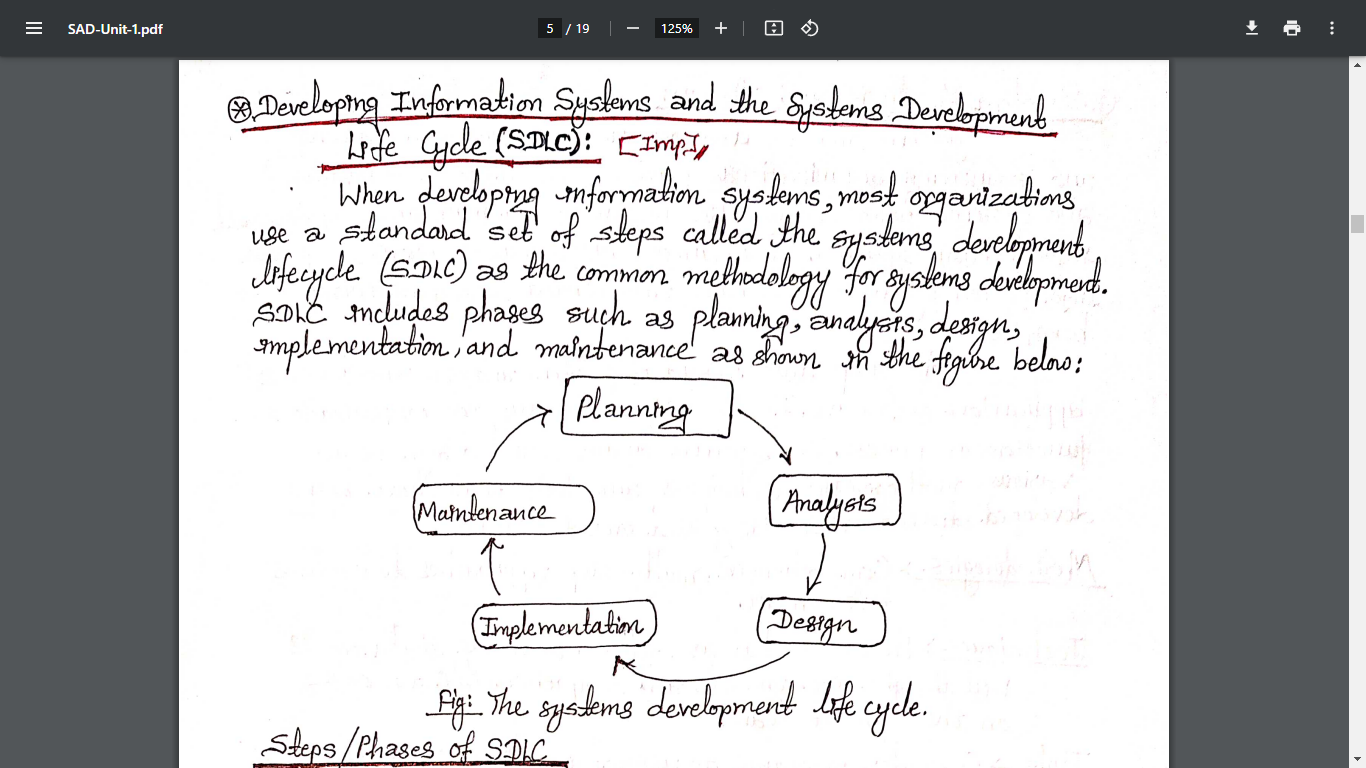 SAD-Unit-1.pdf
5 / 19
125%
⊛ Developing Information Systems and the Systems Development
Life Cycle (SDLC): [Imp]
When developing information systems, most organizations
use a standard set of steps called the systems development
lifecycle (SDLC) as the common methodology for systems development.
SDLC includes phases such as planning, analysis, design,
implementation, and maintenance as shown in the figure below:
Planning
Maintenance
Analysis
Implementation
Design
Fig: The systems development life cycle.
Steps/Phases of SDLC